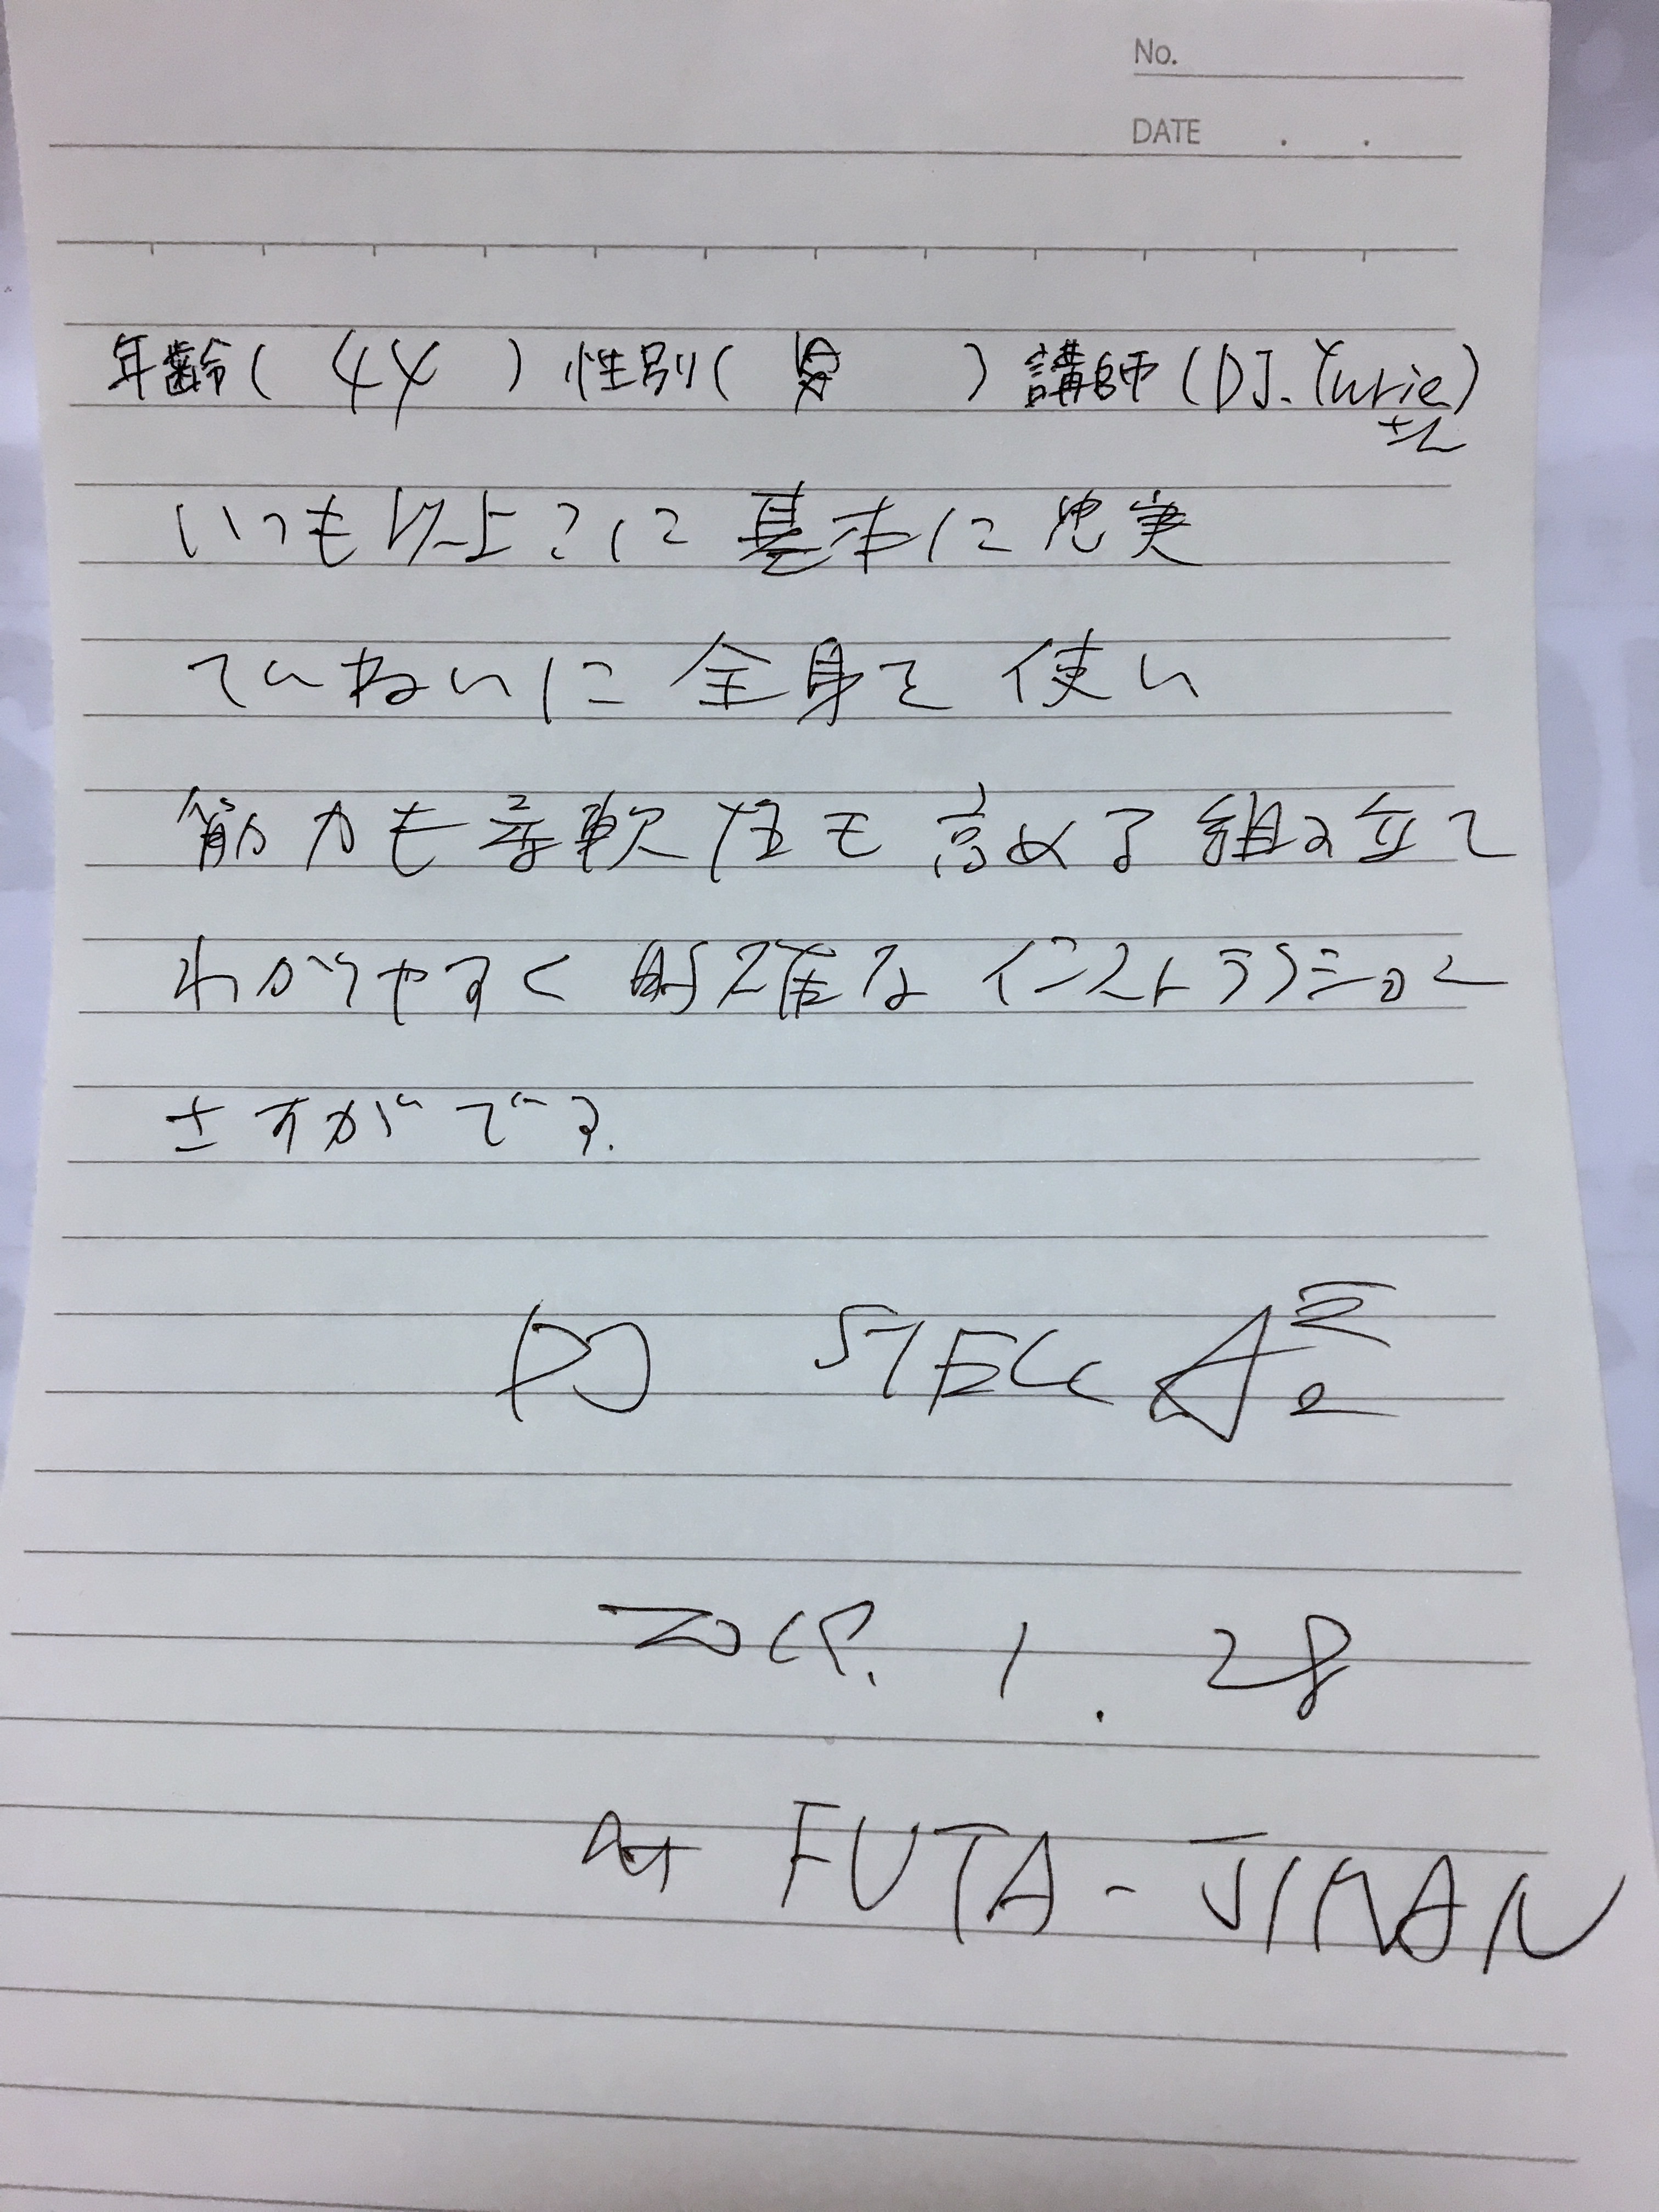 No.
DATE . .
年齢( 44 ) 性別( 男 ) 講師(DJ. Yurie)
いつも以上に基本に忠実
ていねいに全身を使い
筋力も柔軟性も高める組み立て
わかりやすく明確なインストラクション
さすがです.
DJ
1. 28
at FUTA-JIMAN